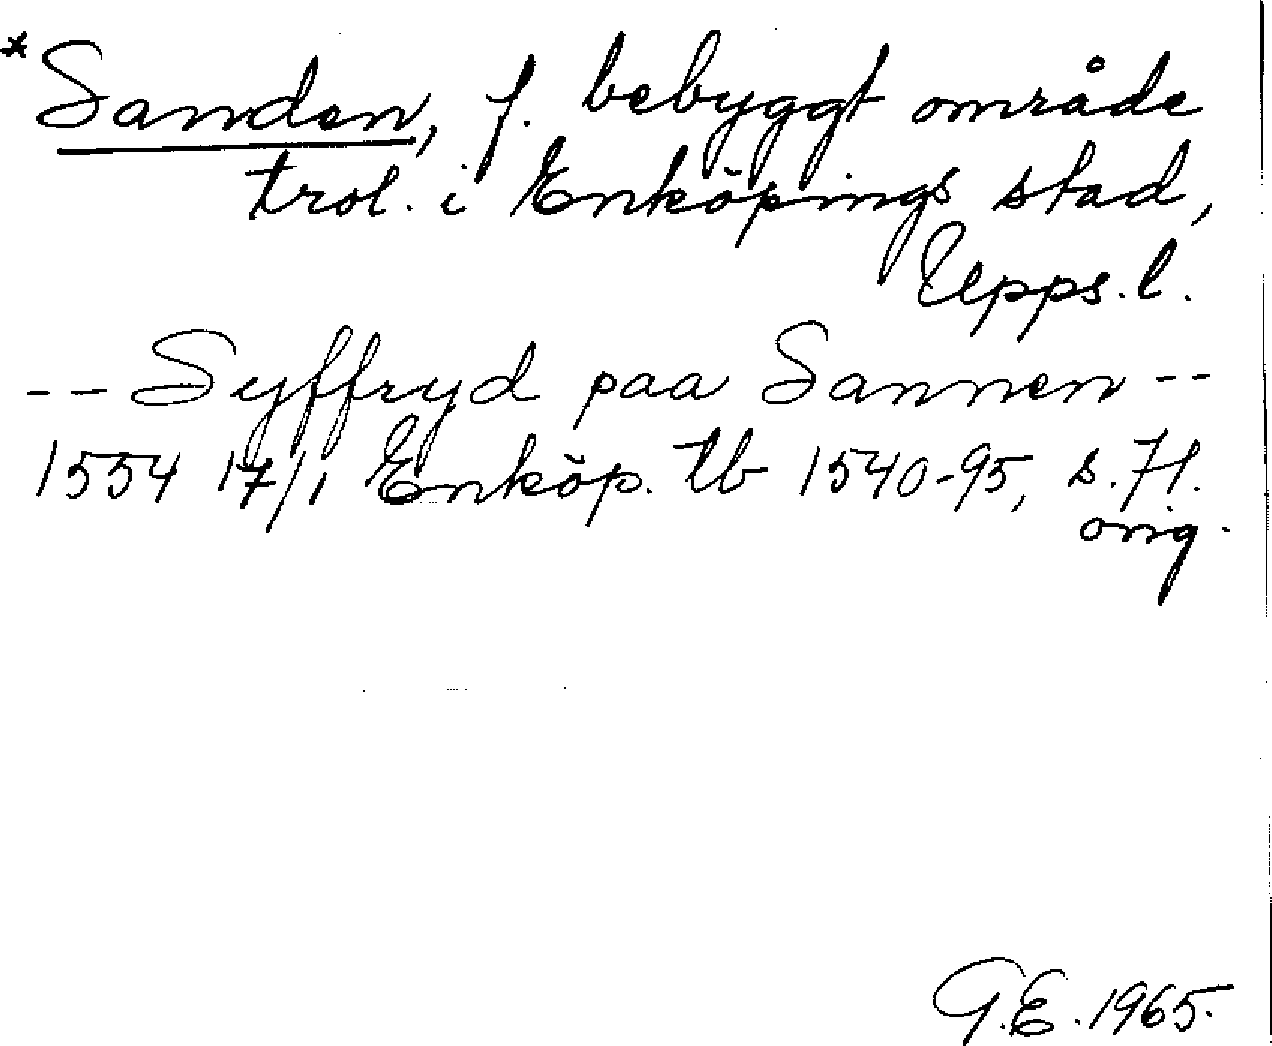 *Sanden, f. bebyggt område
trol. i Enköpings stad,
Upps. l.
-- Syffryd paa Sannen --
1554 17/1 Enköp. tb 1540-95, s. 71.
orig.
G.E. 1965.